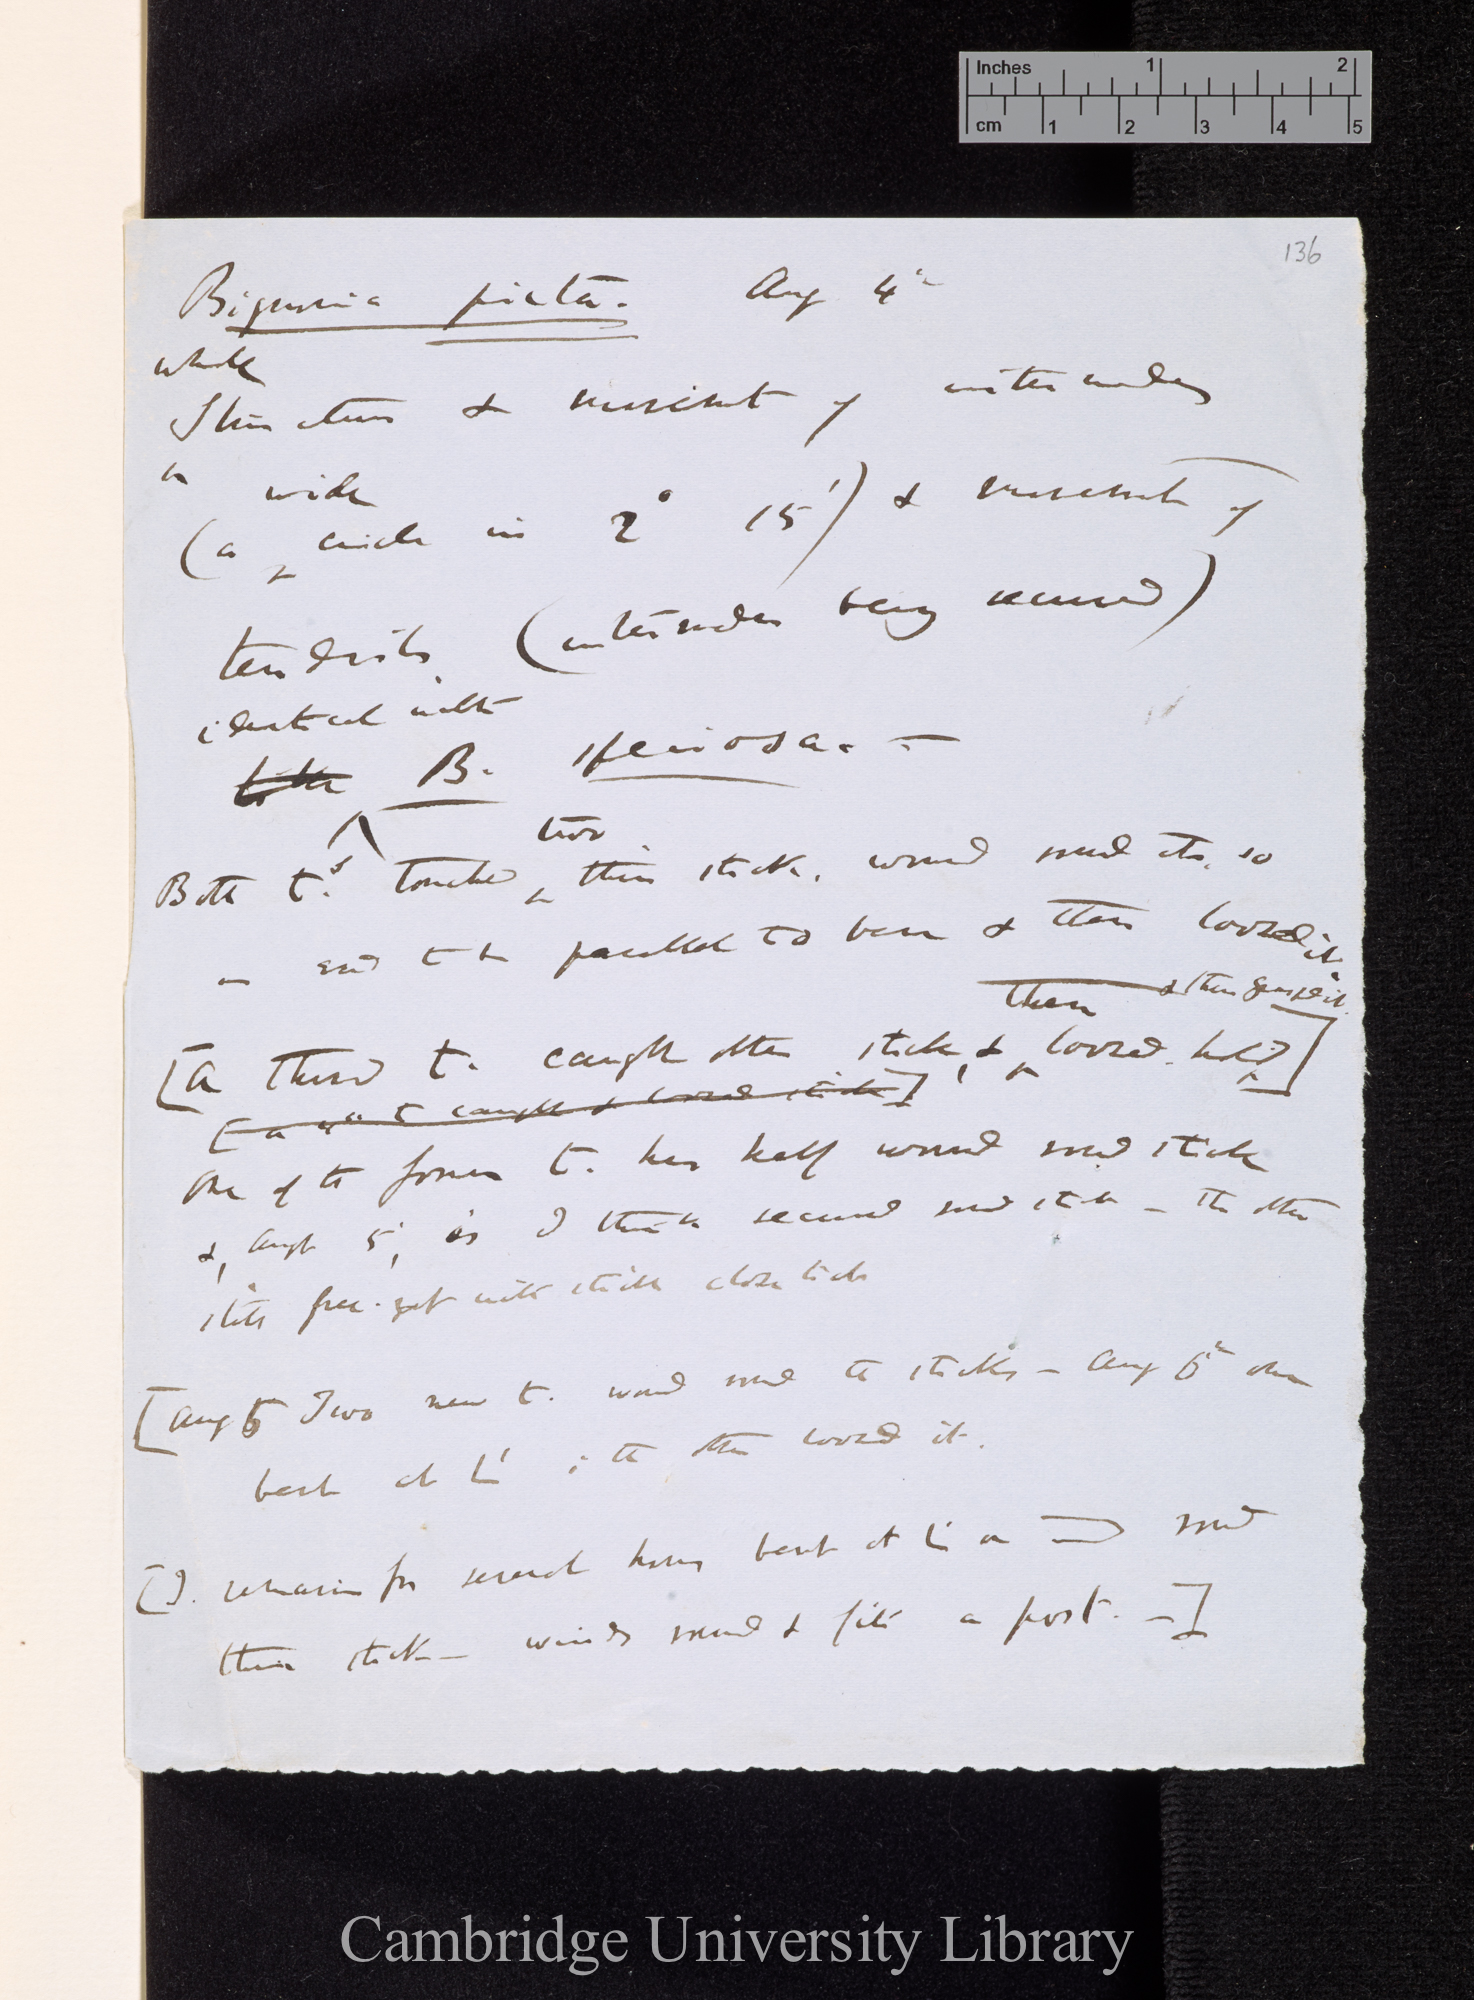 Inches 1 2
cm 1 2 3 4 5
136
Bignonia picta. Aug 4th
whole
Structure & movement of internodes
wide
(a circle in 2° 15') & movement of
tendrils (internodes being secured)
identical with
like B. speciosa. —
two
Both t.s touched thin stick, wound round sticks, so
as end to be parallel to base & then loosed it
then & then grasped it.
[A third t. caught other stick, & loosed hold]
[a 4th t caught & loosed stick]
One of the former t. has half wound round stick
&, Aug 5, is I think secured round stick — The other
still free. yet with stick close
[Aug 5 Two new t. wound round the sticks — Aug 6th one
bent at L ; the other loosed it.
remain for several hours bent at L or round
thin stick — winds round & fits a post. —]
Cambridge University Library